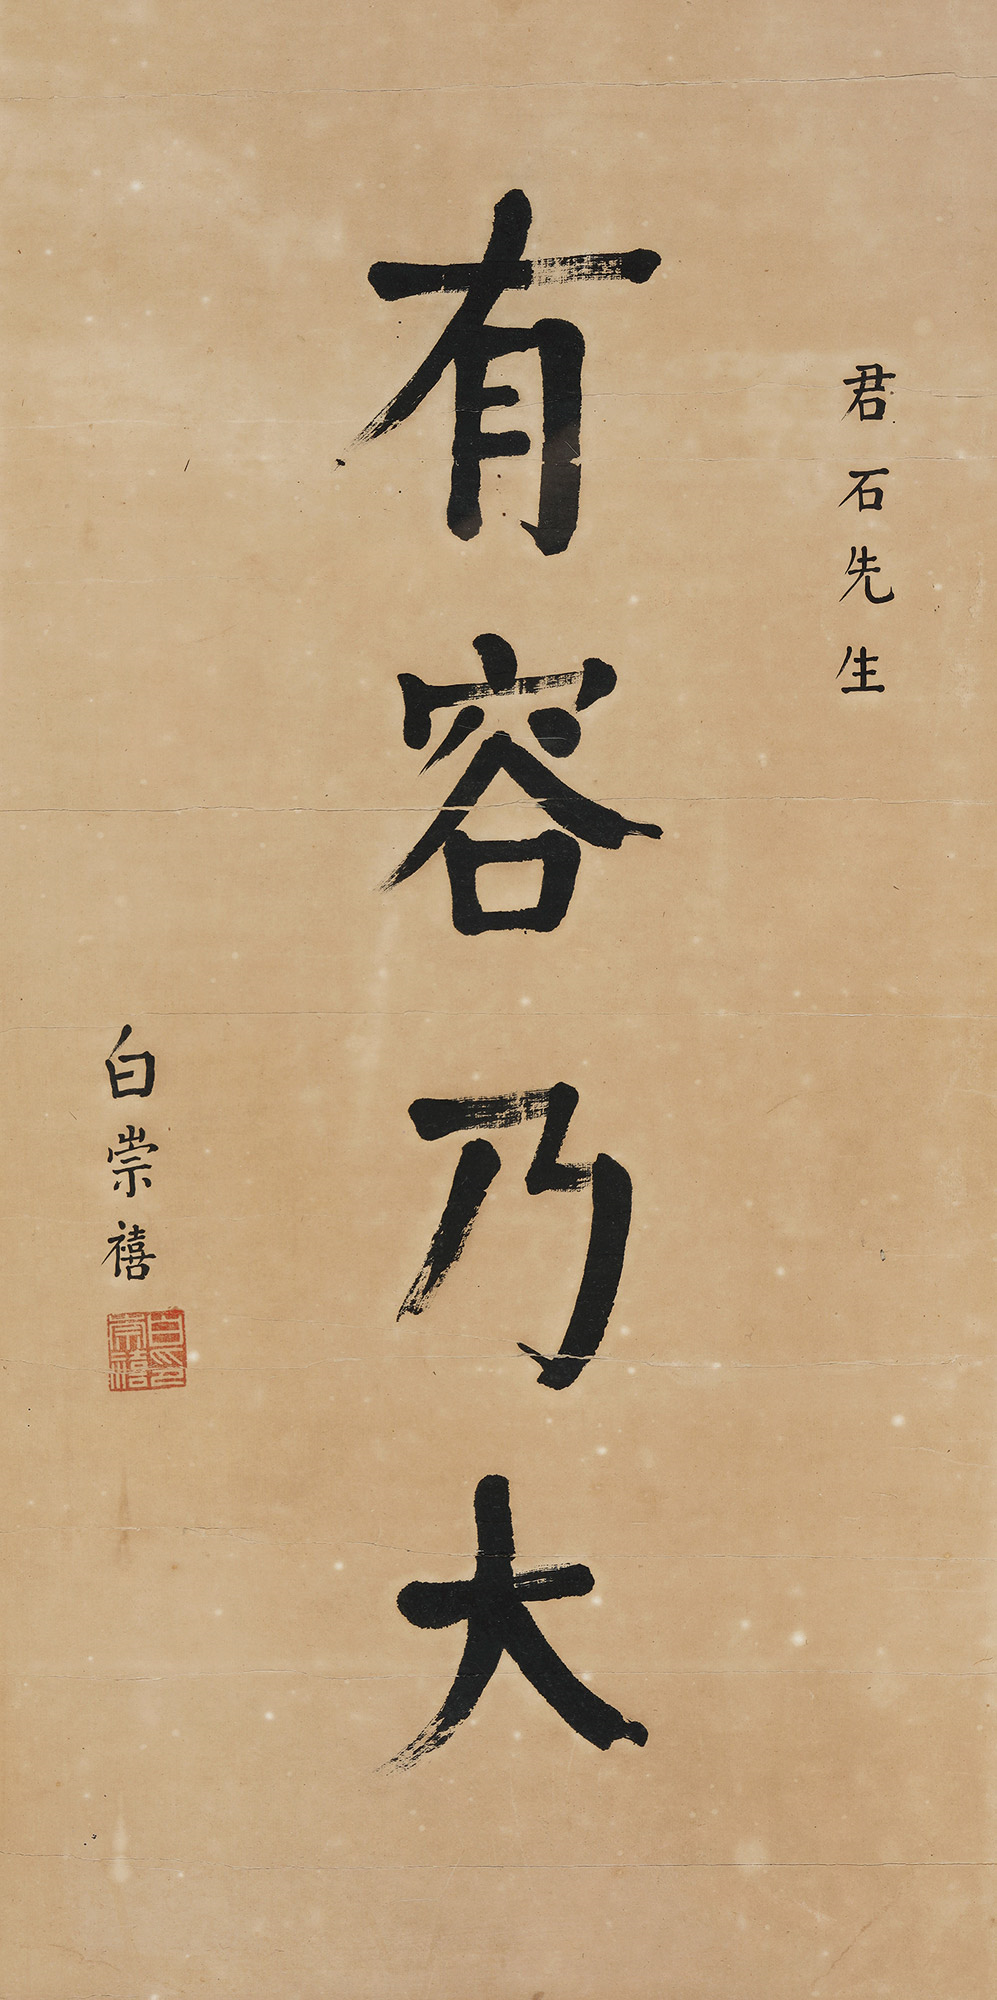 君石先生
有容乃大
白崇禧
白崇禧印